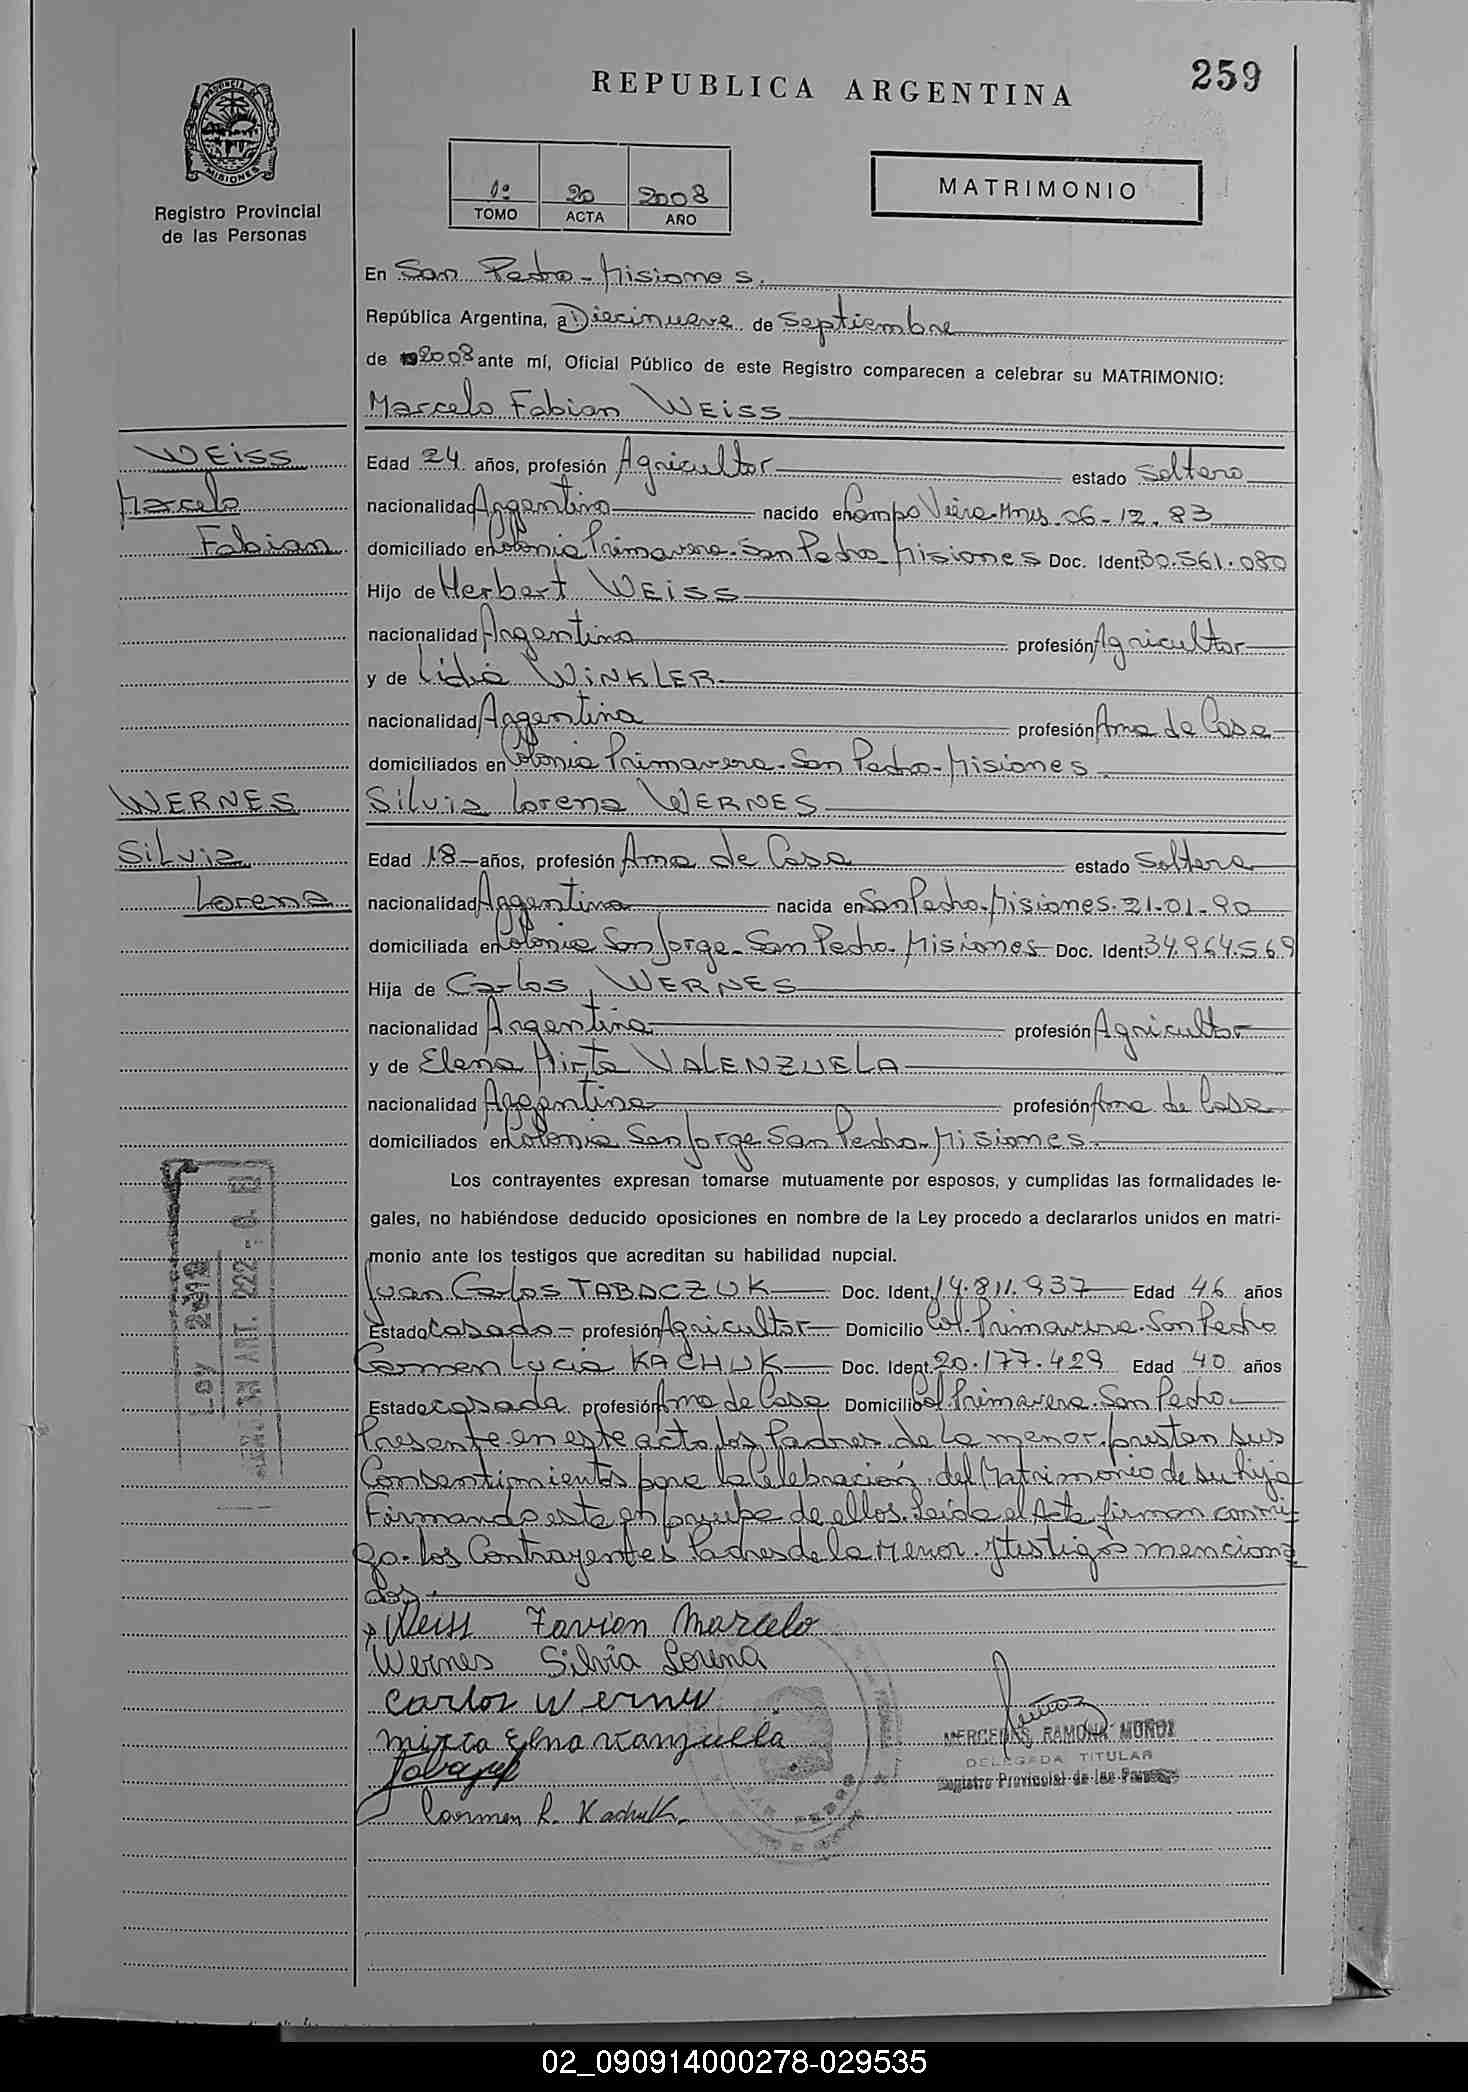 259
REPUBLICA ARGENTINA
PROVINCIA DE
MISIONES
Registro Provincial
de las Personas
1º 20 2008
TOMO ACTA AÑO
MATRIMONIO
En San Pedro - Misiones.
República Argentina, a Diecinueve de Septiembre
de 2008 ante mí, Oficial Público de este Registro comparecen a celebrar su MATRIMONIO:
Marcelo Fabian WEISS
WEISS
Marcelo
Fabian
Edad 24 años, profesión Agricultor estado Soltero
nacionalidad Argentina nacido en Campo Viera-Mnes. 06-12.83
domiciliado en Colonia Primavera - San Pedro - Misiones Doc. Ident. 30.561.080
Hijo de Herbert WEISS
nacionalidad Argentina profesión Agricultor
y de Lidia WINKLER
nacionalidad Argentina profesión Ama de Casa
domiciliados en Colonia Primavera - San Pedro - Misiones
WERNES
Silvia
Lorena
Silvia Lorena WERNES
Edad 18 años, profesión Ama de Casa estado Soltera
nacionalidad Argentina nacida en San Pedro - Misiones. 21-01-90
domiciliada en Colonia San Jorge - San Pedro - Misiones Doc. Ident. 34.964.569
Hija de Carlos WERNES
nacionalidad Argentina profesión Agricultor
y de Elena Mirta VALENZUELA
nacionalidad Argentina profesión Ama de Casa
domiciliados en Colonia San Jorge San Pedro - Misiones.
Los contrayentes expresan tomarse mutuamente por esposos, y cumplidas las formalidades le-
gales, no habiéndose deducido oposiciones en nombre de la Ley procedo a declararlos unidos en matri-
monio ante los testigos que acreditan su habilidad nupcial.
Juan Carlos TABACZUK Doc. Ident. 14.811.937 Edad 46 años
Estado Casado - profesión Agricultor Domicilio Col. Primavera. San Pedro
Carmen Lucia KACHUK Doc. Ident. 20.177.429 Edad 40 años
Estado casada profesión Ama de Casa Domicilio Col. Primavera. San Pedro
Presente en este acto los Padres de la menor prestan sus
Consentimientos para la Celebración del Matrimonio de su hija
Firmando esta en prueba de ellos. Leida el Acta firman conmi-
go. los Contrayentes Padres de la Menor y testigos menciona
dos.
Weiss Favian Marcelo
Wernes Silvia Lorena
Carlos Wernes
Mirta
Carmen L. Kachuk.
MERCEDES RAMONA MUÑOZ
DELEGADA TITULAR
Registro Provincial de las Personas
ART. 222
Ley
02_090914000278-029535